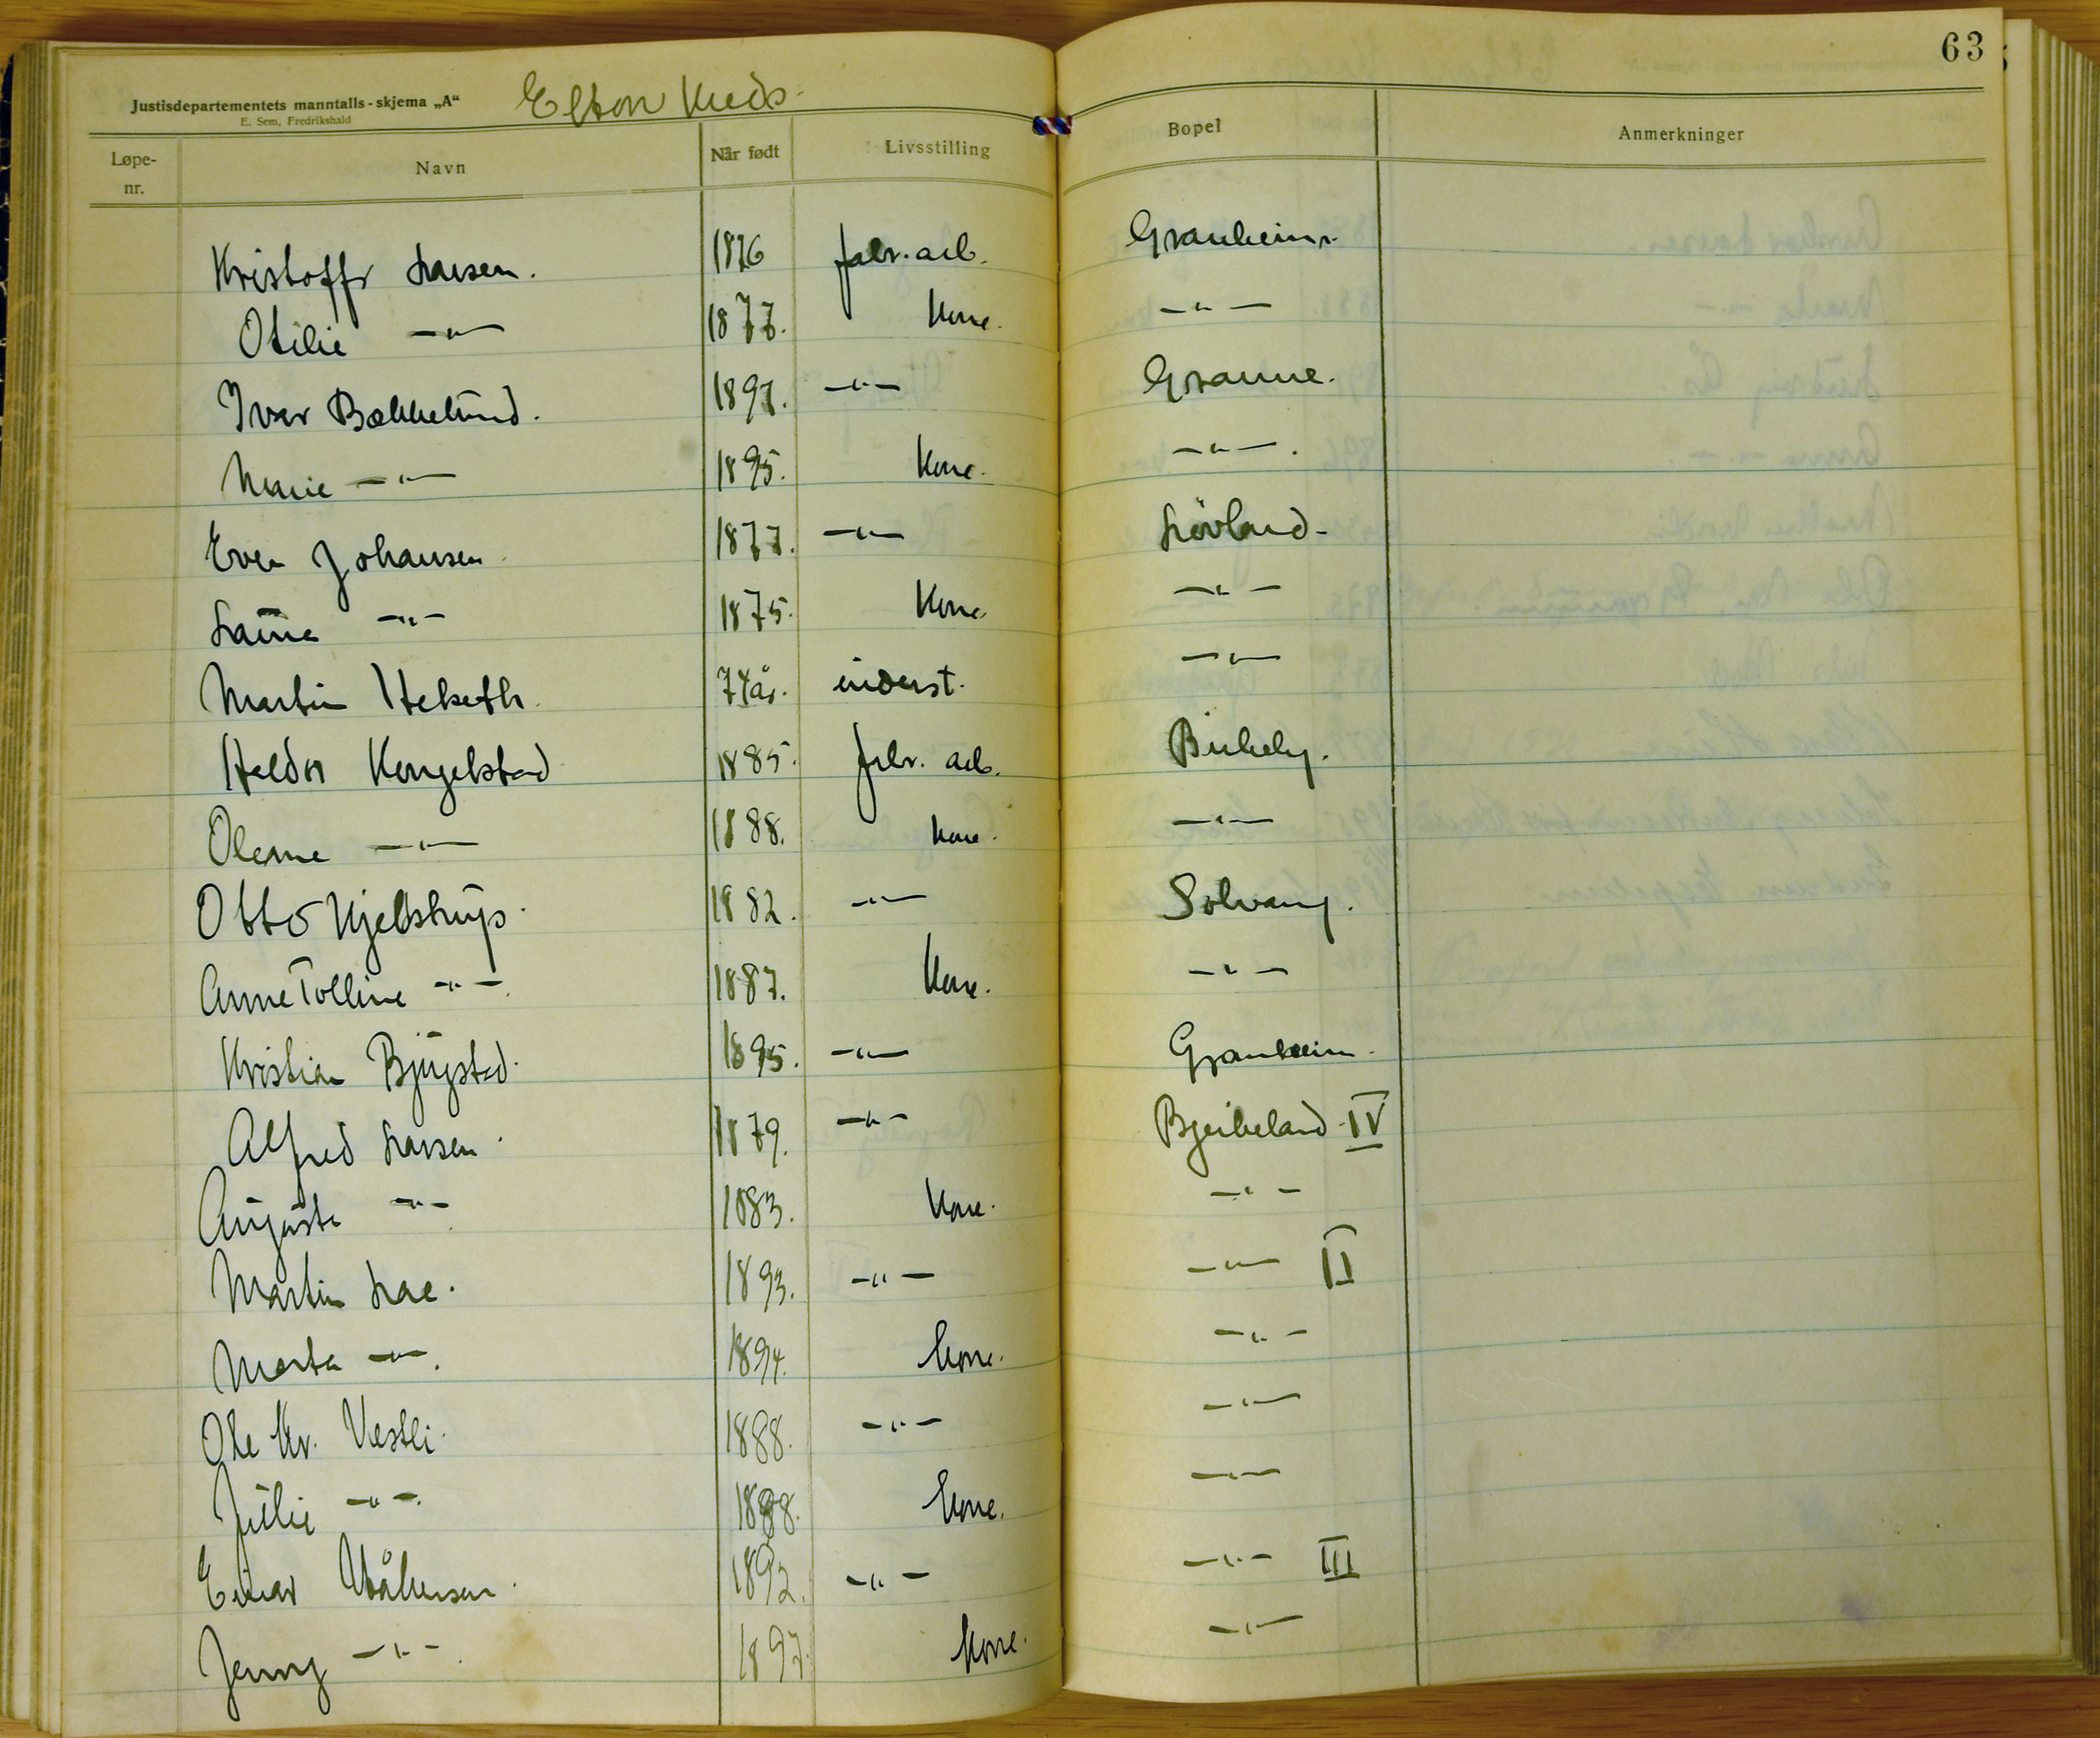 63
Justisdepartementets manntalls-skjema „A“ Elton Kreds.
E. Sem, Fredrikshald
Løpe-nr. Navn Når født Livsstilling Bopel Anmerkninger
Kristoffr Larsen. 1876 fabr. arb. Granheim.
Otilie —„— 1877. Kone. —„—
Iver Bækkelund. 1897. —„— Granne.
Marie —„— 1895. Kone. —„—.
Even Johansen 1877. —„— Lövland-
Laura —„— 1875. Kone. —„—
Martin Hekseth. 74 år. inderst. —„—
Haldor Kongelstad 1885. fabr. arb. Birkely.
Oleane —„— 1888. Kone. —„—
Otto Kjelstrup. 1882. —„— Solvang.
Anne Tolline —„—. 1887. Kone. —„—
Kristian Bjugstad. 1895. —„— Granheim.
Alfred Larsen. 1879. —„— Bjerkeland IV
Augusta —„— 1883. Kone. —„—
Martin Lae. 1893. —„— —„— II
Marta —„—. 1894. Kone. —„—
Ole Kr. Vestli. 1888. —„— —„—
Julie —„—. 1888. Kone. —„—
Einar Håkensen. 1892. —„— —„— III
Jenny —„—. 1897. Kone. —„—